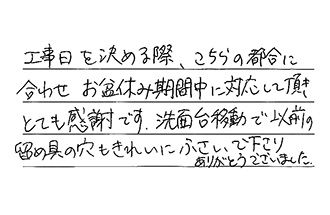 工事日を決める際、こちらの都合に
合わせ お盆休み期間中に対応して頂き
とても感謝です。洗面台移動で以前の
留め具の穴もきれいにふさいで下さり
ありがとうございました。